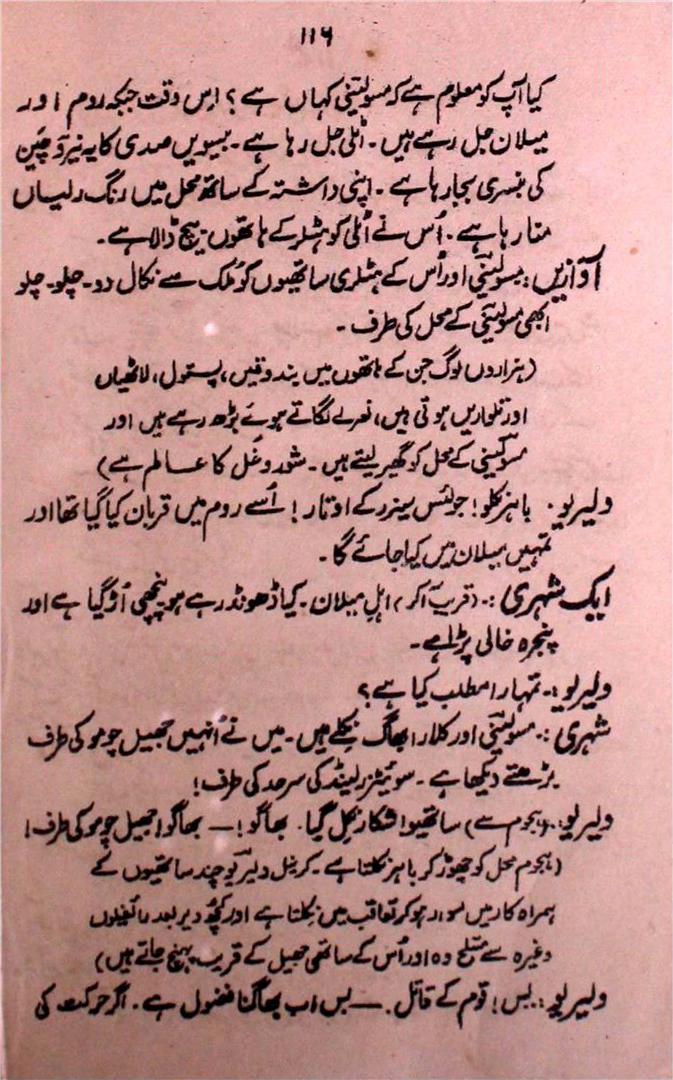 ۱۱۶
کیا آپ کو معلوم ہے کہ مسولینی کہاں ہے؟ اس وقت جبکہ روم اور
میلان جل رہے ہیں۔ اٹلی جل رہا ہے۔ بیسویں صدی کا یہ نیرو چین
کی بنسری بجا رہا ہے۔ اپنی داشتہ کے ساتھ محل میں رنگ رلیاں
منا رہا ہے۔ اُس نے اٹلی کو ہٹلر کے ہاتھوں بیچ ڈالا ہے۔
آوازیں:۔ مسولینی اور اُس کے ہٹلری ساتھیوں کو ملک سے نکال دو۔ چلو۔ چلو
ابھی مسولینی کے محل کی طرف۔
(ہزاروں لوگ جن کے ہاتھوں میں بندوقیں، پستول، لاٹھیاں
اور تلواریں ہوتی ہیں، نعرے لگاتے ہوئے بڑھ رہے ہیں اور
مسولینی کے محل کو گھیر لیتے ہیں۔ شور و غُل کا عالم ہے)
ولیریو۔ باہر نکلو! جولئس سیزر کے اوتار! اُسے روم میں قربان کیا گیا تھا اور
تمہیں میلان میں کیا جائے گا۔
ایک شہری:۔ (قریب آکر) اہلِ میلان۔ کیا ڈھونڈ رہے ہو پنچھی اُڑ گیا ہے اور
پنجرہ خالی پڑا ہے۔
ولیریو:۔ تمہارا مطلب کیا ہے؟
شہری:۔ مسولینی اور کلارا بھاگ نکلے ہیں۔ میں نے اُنہیں جھیل چومو کی طرف
بڑھتے دیکھا ہے۔ سوئیٹزرلینڈ کی سرحد کی طرف!
ولیریو:۔ (ہجوم سے) ساتھیو! شکار نکل گیا۔ بھاگو! — بھاگو! جھیل چومو کی طرف!
(ہجوم محل کو چھوڑ کر باہر نکلتا ہے۔ کرنیل ولیریو چند ساتھیوں کے
ہمراہ کار میں سوار ہو کر تعاقب میں نکلتا ہے اور کچھ دیر بعد رائفیلوں
وغیرہ سے مسلح وہ اور اُس کے ساتھی جھیل کے قریب پہنچ جاتے ہیں)
ولیریو:۔ بس! قوم کے قاتل۔ — بس اب بھاگنا فضول ہے۔ اگر حرکت کی